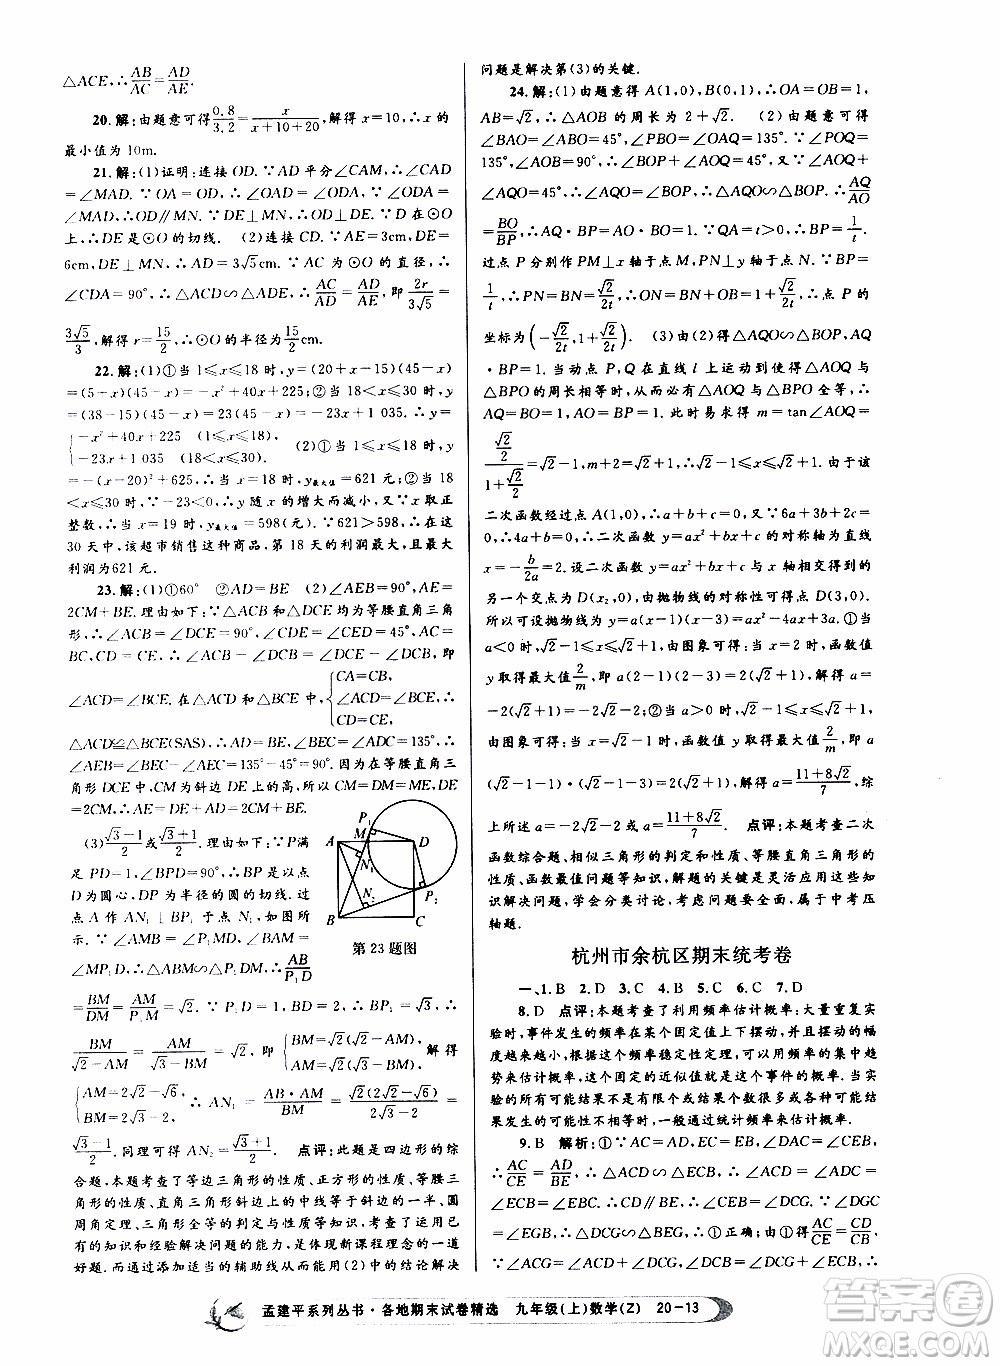 △ACE,∴AB/AC=AD/AE.
20.解:由题意可得0.8/3.2=x/(x+10+20),解得x=10,∴x的
最小值为10m.
21.解:(1)证明:连接OD.∵AD平分∠CAM,∴∠CAD
=∠MAD.∵OA=OD,∴∠OAD=∠ODA,∵∠ODA=
∠MAD,∴OD∥MN.∵DE⊥MN,∴DE⊥OD.∵D在⊙O
上,∴DE是⊙O的切线. (2)连接CD.∵AE=3cm,DE=
6cm,DE⊥MN,∴AD=3√5cm.∵AC为⊙O的直径,∴
∠CDA=90°,∴△ACD∽△ADE,∴AC/AD=AD/AE,即2r/3√5=
3√5/3,解得r=15/2,∴⊙O的半径为15/2cm.
22.解:(1)①当1≤x≤18时,y=(20+x-15)(45-x)
=(5+x)(45-x)=-x²+40x+225;②当18<x≤30时,y
=(38-15)(45-x)=23(45-x)=-23x+1 035.∴y=
{-x²+40x+225 (1≤x≤18),
-23x+1 035 (18<x≤30). (2)①当1≤x≤18时,y
=-(x-20)²+625,∴当x=18时,y最大值=621元;②当18
<x≤30时,∵-23<0,∴y随x的增大而减小,又x取正
整数,∴当x=19时,y最大值=598(元).∵621>598,∴在这
30天中,该超市销售这种商品第18天的利润最大,且最大
利润为621元.
23.解:(1)①60° ②AD=BE (2)∠AEB=90°,AE=
2CM+BE.理由如下:∵△ACB和△DCE均为等腰直角三角
形,∠ACB=∠DCE=90°,∴∠CDE=∠CED=45°,∴AC=
BC,CD=CE,∴∠ACB-∠DCB=∠DCE-∠DCB,即
∠ACD=∠BCE.在△ACD和△BCE中,{CA=CB,
∠ACD=∠BCE,∴
CD=CE,
△ACD≌△BCE(SAS).∴AD=BE,∠BEC=∠ADC=135°,∴
∠AEB=∠BEC-∠CED=135°-45°=90°.因为在等腰直角三
角形DCE中,CM为斜边DE上的高,∴CM=DM=ME,∴DE
=2CM.∴AE=DE+AD=2CM+BE.
(3)(√3-1)/2或(√3+1)/2.解答如下:∵P满
足PD=1,∠BPD=90°,∴BP是以
D为圆心,DP为半径的圆的切线.过
点A作AN₁⊥BP₁于点N₁,如图所
示.∵∠AMB=∠P₁MD,∴∠ABM
=∠MP₁D,∴△ABM∽△P₁DM,∴AB/P₁D
P₁
M
A
D
N₁
N₂
P₂
B
C
第23题图
=BM/DM=AM/P₁M=√2.∵P₁D=1,BD=2,∴BP₁=√3,∴
BM/(√2-AM)=AM/(√3-BM)=√2,即{BM=√2(√2-AM),
AM=√2(√3-BM),解得
{AM=2√2-√6,
BM=2√3-√2.∴AN₁=AB·AM/BM=
(√3-1)/2.同理可得AN₂=(√3+1)/2. 点评:本题是四边形的综
合题,本题考查了等边三角形的性质、正方形的性质、等腰三
角形的性质、直角三角形斜边上的中线等于斜边的一半、圆
周角定理、三角形全等的判定与性质等知识,考查了运用已
有的知识和经验解决问题的能力,是体现新课程理念的一道
好题.而通过添加适当的辅助线从而能用(2)中的结论解决
问题是解决第(3)的关键.
24.解:(1)由题意得A(1,0),B(0,1),∴OA=OB=1,
AB=√2,∴△AOB的周长为2+√2. (2)由题意得
∠BAO=∠ABO=45°,∠PBO=∠OAQ=135°.∵∠POQ=
135°,∠AOB=90°,∴∠BOP+∠AOQ=45°,又∵∠AOQ+
∠AQO=45°,∴∠AQO=∠BOP,∴△AQO∽△BOP,∴AQ/AO
=BO/BP,∴AQ·BP=AO·BO=1.∵AQ=t>0,∴BP=1/t.
过点P分别作PM⊥x轴于点M,PN⊥y轴于点N,∵BP=
1/t,∴PN=BN=√2/2t,∴PM=NO=BO+BN=1+√2/2t,∴点P的
坐标为(-√2/2t,1+√2/2t). (3)由(2)得△AQO∽△BOP,AQ
·BP=1,因为动点P,Q在直线l上运动时,△AOQ与
△BPO的周长相等,从而必有△AOQ与△BPO全等,∴
AQ=BO=BP=AO=1.此时易求得m=tan∠AOQ=
(√2/2)/(1+√2/2)=√2-1,m+1=√2,∴2/m=2√2+2. 由于该
二次函数经过点A(1,0),∴a+b+c=0.又∵6a+3b+2c=
0,∴b=-4a,c=3a,∴y=ax²+bx+c的对称轴为直线
x=-b/2a=2.设二次函数y=ax²+bx+c的图象与x轴的
另一个交点为D(x₂,0),由抛物线的对称性可知D(3,0).
所以可设抛物线为y=a(x-1)(x-3)=ax²-4ax+3a.①当
a<0时,∵√2-1≤x≤√2+1,由图象可得:当x=2时,函数值
y取得最大值2/m,∴a(2-1)(2-3)=2√2+2,解得a=
-2√2-2;②当a>0时,∵m≤x≤m+2,∴√2-1≤x≤√2+1,
由图象可得当x=√2-1时,函数值y取得最大值2/m,∴a
(√2-1-1)·(√2-1-3)=2√2+2,解得a=(11+8√2)/7,综
上所述a=-2√2-2或a=(11+8√2)/7. 点评:本题考查二次
函数综合题、相似三角形的判定和性质、等腰三角形的性
质、函数最值问题等知识,解题的关键是灵活应用这些知
识解决问题,学会分类讨论,考虑问题要全面,属于中考压
轴题.
杭州市余杭区期末统考卷
一、1.B 2.D 3.A 4.D 5.B 6.C 7.D
8.D 点评:本题考查了利用频率估计概率:大量重复实
验时,事件发生的频率在某个固定值上下摆动,并且摆动的幅
度越来越小,根据这个频率稳定性定理,可以用频率的集中趋
势来估计概率,这个固定的近似值就是这个事件的概率.当
实验的所有可能结果不是有限个或结果个数很多,或各种可
能结果发生的可能性不相等时,一般通过统计频率来估计概率.
9.B 解析:①∵AC·BE=AD·CE,
∴AC/CE=AD/BE.∵∠DAC=∠ECB,∴△ADC∽△ECB,∴
∠ECB=∠EBC,∴∠ECB=∠DCG.∵∠DGC
=∠EGB,∴△DCG∽△EBG,∴①正确;由①得AC/CE=CD/CB
∵∠ACE=∠DCG+∠DCE,∠BCD=∠ECB+∠DCE,∴
孟建平系列丛书·各地期末试卷精选 九年级(上)数学(Z) 20-13
答案圈
MXQE.COM